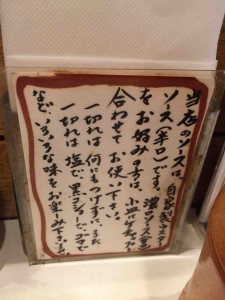 当店のソースは、自家製ウスター
ソース(辛口)です。濃口ソース(甘口)
をお好みの方は、小皿にケチャップと
合わせてお使い下さい。
一切れは何にもつけずに、また
一切れは塩で、黒コショーで、カラシで
など、いろいろな味をお楽しみ下さいませ。